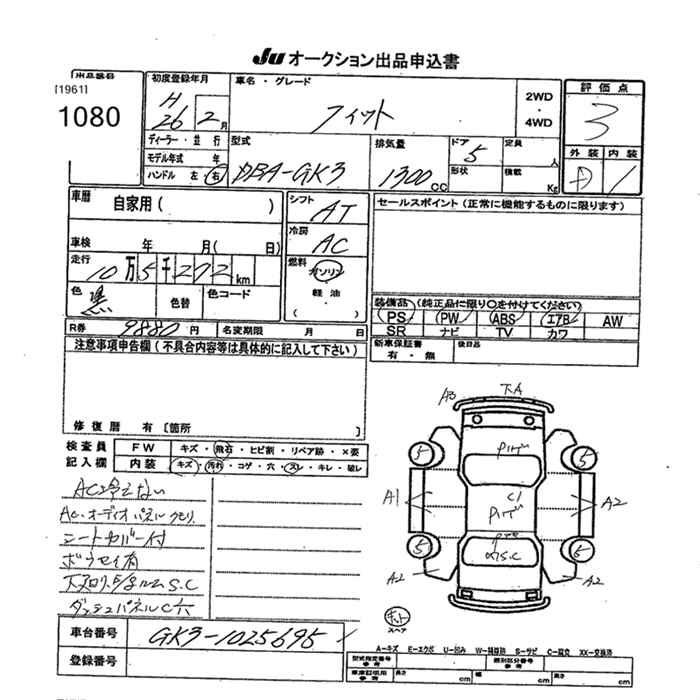 Ju オークション出品申込書
出品番号
[1961]
1080
初度登録年月
H 26 2月
ディーラー・並行
モデル年式 年
ハンドル 左・右
車名・グレード
フィット
2WD
・
4WD
評価点
3
型式
DBA-GK3
排気量
1300cc
ドア
5
形状
定員
人
積載
Kg
外装 内装
D 1
車暦
自家用( )
車検 年 月( 日)
走行
10万5千272km
色
黒
色替
色コード
シフト
AT
冷房
AC
燃料
ガソリン
軽油
( )
セールスポイント(正常に機能するものに限ります)
装備品(純正品に限り○を付けてください)
PS PW ABS エアB AW
SR ナビ TV カワ
新車保証書
有・無
後日品
R券 9880円 名変期限 月 日
注意事項申告欄(不具合内容等は具体的に記入して下さい)
修復暦 有〔箇所 〕
検査員
記入欄
FW キズ・飛石・ヒビ割・リペア跡・×要
内装 キズ・汚れ・コゲ・穴・スレ・キレ・破レ
AC冷えない
AC・オーディオパネルクモリ
シートカバー付
ダッシュパネルC穴
A3 下A
5 5
A1 C1 A2
5 5
A2 A2
スペア
車台番号 GK3-1025695
登録番号
A-キズ E-エクボ U-凹み W-補修跡 S-サビ C-腐食 XX-交換済
型式指定番号
参考
類別区分番号
参考
車庫証明用
参考
長さ cm 幅 cm 高さ cm